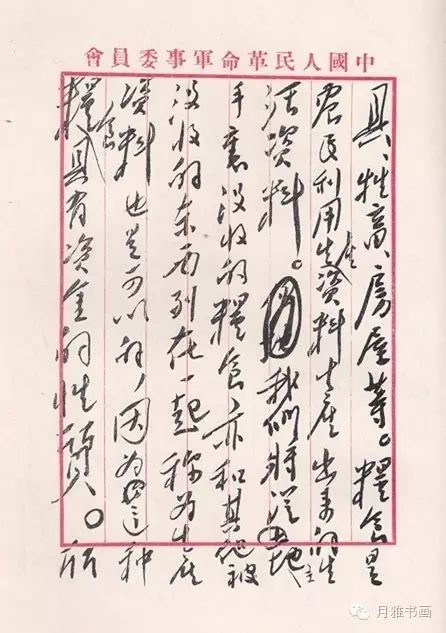 中國人民革命軍事委員會
具、牲畜、房屋等。糧食是
農民利用生產資料生產出来的生
活資料。我們將從地主
手裏没收的糧食亦和其他被
没收的东西列在一起称为生產
資料也是可以的，因为這种
糧食具有資金的性質。所
月雅书画